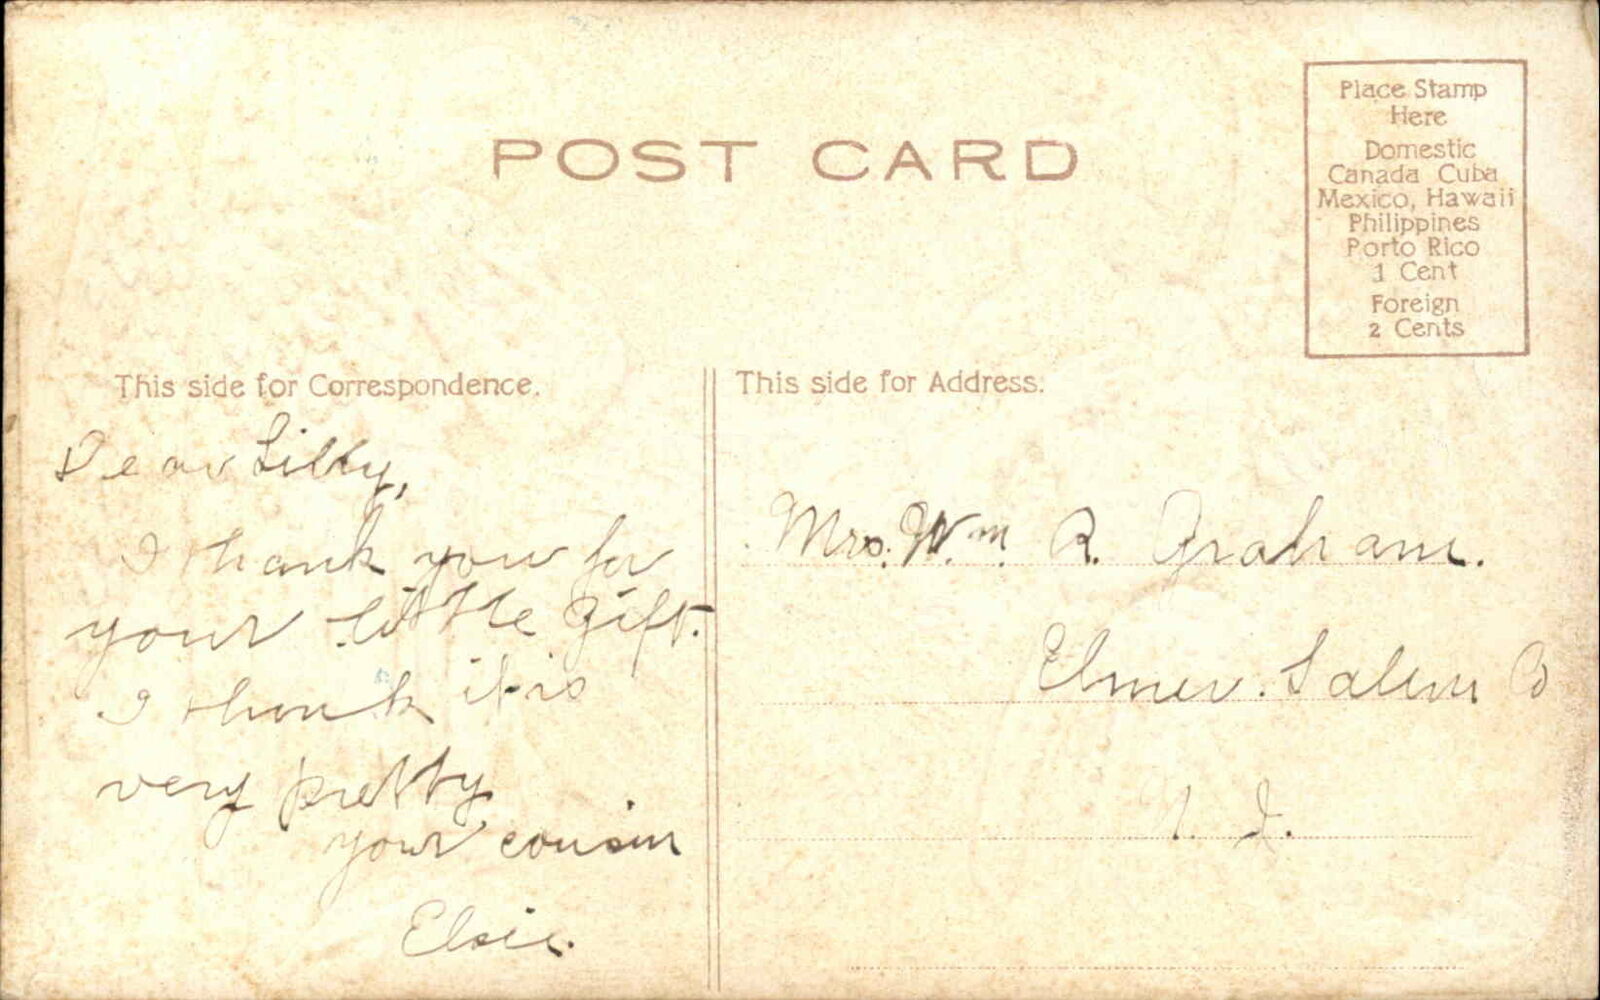 POST CARD
Place Stamp
Here
Domestic
Canada Cuba
Mexico, Hawaii
Philippines
Porto Rico
1 Cent
Foreign
2 Cents
This side for Correspondence.
Dear Libby,
I thank you for
your little gift.
I think it is
very pretty
your cousin
Elsie.
This side for Address:
Mrs. Wm. R. Graham.
Elmer. Salem Co
N. J.